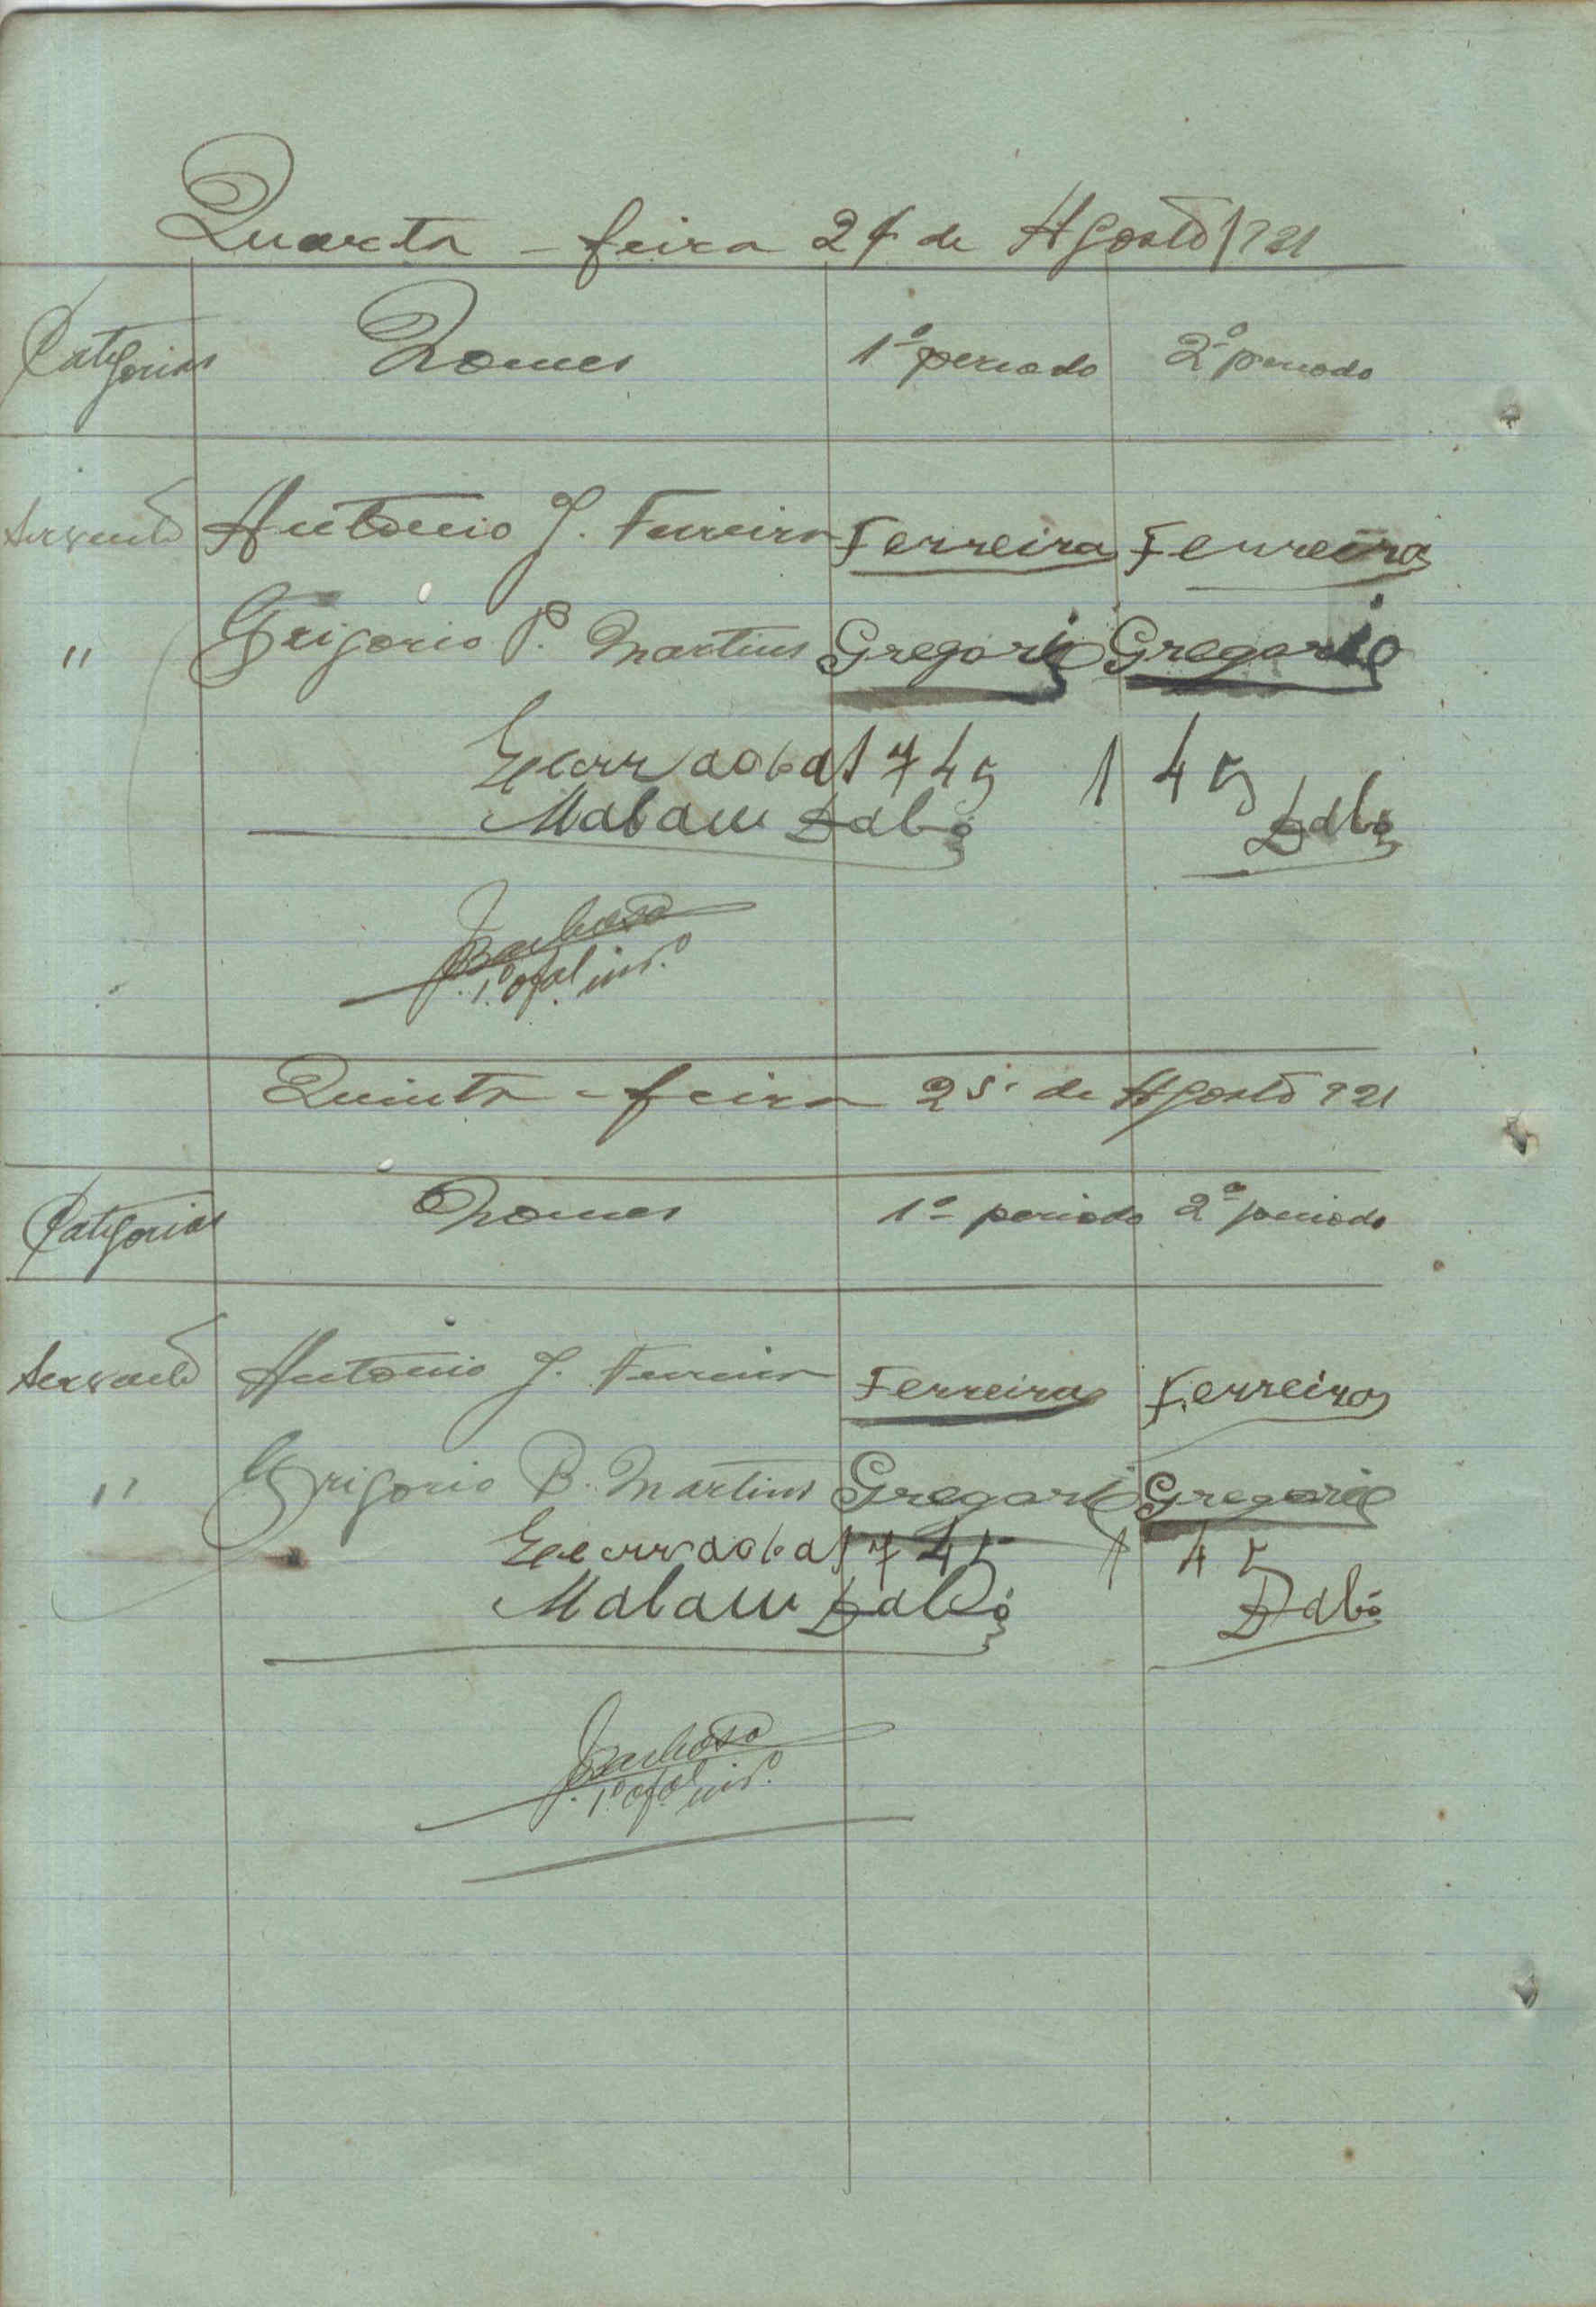 Quarta-feira 24 de Agosto 1921
Categorias Nomes 1º periodo 2º periodo
Servente Antonio J. Ferreira Ferreira Ferreira
" Grigorio P. Martins Gregorio Gregorio
1 7 45 1 45
Malam Dabó Dabó
Barbosa
1º ofal intº.
Quinta-feira 25 de Agosto 921
Categorias Nomes 1º periodo 2º periodo
Servente Antonio J. Ferreira Ferreira Ferreira
" Grigorio P. Martins Gregorio Gregorio
1 7 45 1 45
Malam Dabó Dabó
Barbosa
1º ofal intº.